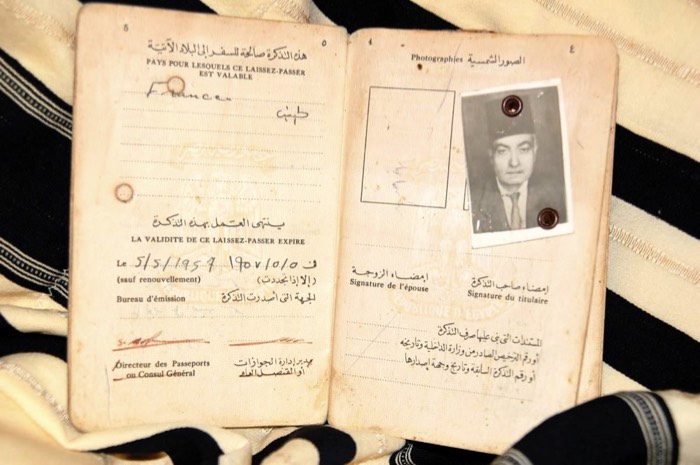 ٥
هذه التذكرة صالحة للسفر إلى البلاد الآتية
PAYS POUR LESQUELS CE LAISSEZ-PASSER
EST VALABLE
France
ينتهى العمل بهذه التذكرة
LA VALIDITE DE CE LAISSEZ-PASSER EXPIRE
Le 5/5/1957 ١٩٥٧/٥/٥ فى
(sauf renouvellement) (إلا إذا تجددت)
Bureau d'émission الجهة التى أصدرت التذكرة
Directeur des Passeports مدير إدارة الجوازات
ou Consul Général أو القنصل العام
٤
Photographies الصور الشمسية
إمضاء الزوجة إمضاء صاحب التذكرة
Signature de l'épouse Signature du titulaire
المستندات التى بنى عليها صرف التذكرة
أو رقم الترخيص الصادر من وزارة الداخلية وتاريخه
أو رقم التذكرة السابقة وتاريخ وجهة إصدارها